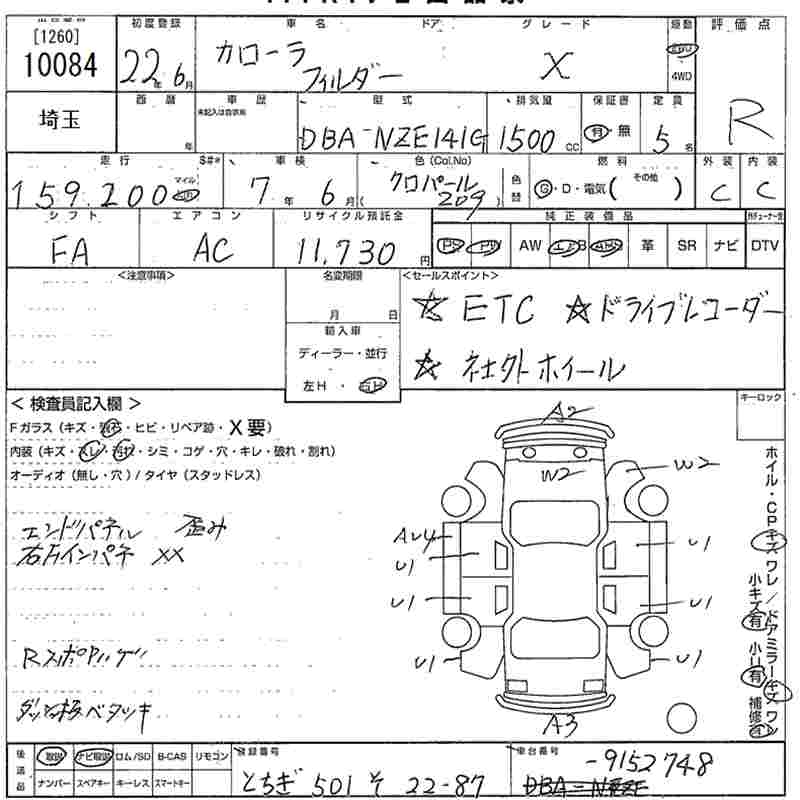 [1260]
10084
初度登録
22年 6月
車名 ドア グレード
カローラ
フィルダー
X
駆動
2WD
4WD
評価点
R
埼玉
西暦
年
車歴
未記入は自家用
型式
DBA-NZE141G
排気量
1500 CC
保証書
有・無
定員
5名
走行
159,200
マイル
km
S#*
車検
7年 6月
色 (Col.No)
クロパール
209
色替
燃料
G・D・電気( その他 )
外装
C
内装
C
シフト
FA
エアコン
AC
リサイクル預託金
11,730円
純正装備品
PS PW AW エアB ABS 革 SR ナビ DTV
<注意事項>
名変期限
月 日
輸入車
ディーラー・並行
左H・右H
<セールスポイント>
☆ ETC ☆ドライブレコーダー
☆ 社外ホイール
<検査員記入欄>
Fガラス (キズ・飛石・ヒビ・リペア跡・X要)
内装 (キズ・スレ・汚れ・シミ・コゲ・穴・キレ・破れ・割れ)
オーディオ (無し・穴) / タイヤ (スタッドレス)
エンドパネル 歪み
右Fインパネ XX
Rスポアリゲリ
ダッシュ板ベタツキ
キーロック
A2
W2
W2
AU4
U1
U1
U1
U1
U1
U1
A3
ホイル・CPキズ ワレ / ドアミラーキズ ワレ
小キズ有 小凹有 補修有
後送品
取説 ナビ取説 ロム/SD B-CAS リモコン
ナンバー スペアキー キーレス スマートキー
登録番号
とちぎ 501 そ 22-87
車台番号
-9152748
DBA-NZE